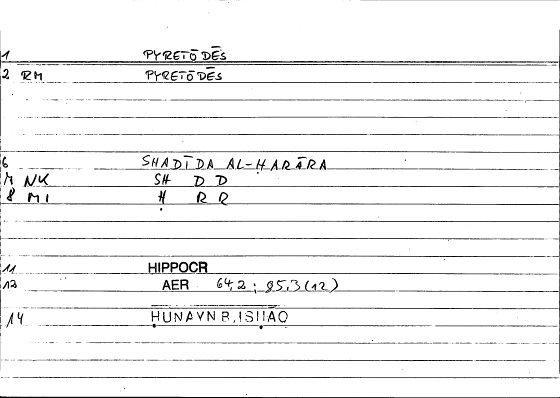 1 PYRETŌDĒS
2 RM PYRETŌDĒS
6 SHADĪDA AL-ḤARĀRA
7 NK SH D D
8 MI Ḥ R R
11 HIPPOCR
12 AER 64,2 ; 85,3 (12)
14 ḤUNAYN B. ISḤĀQ